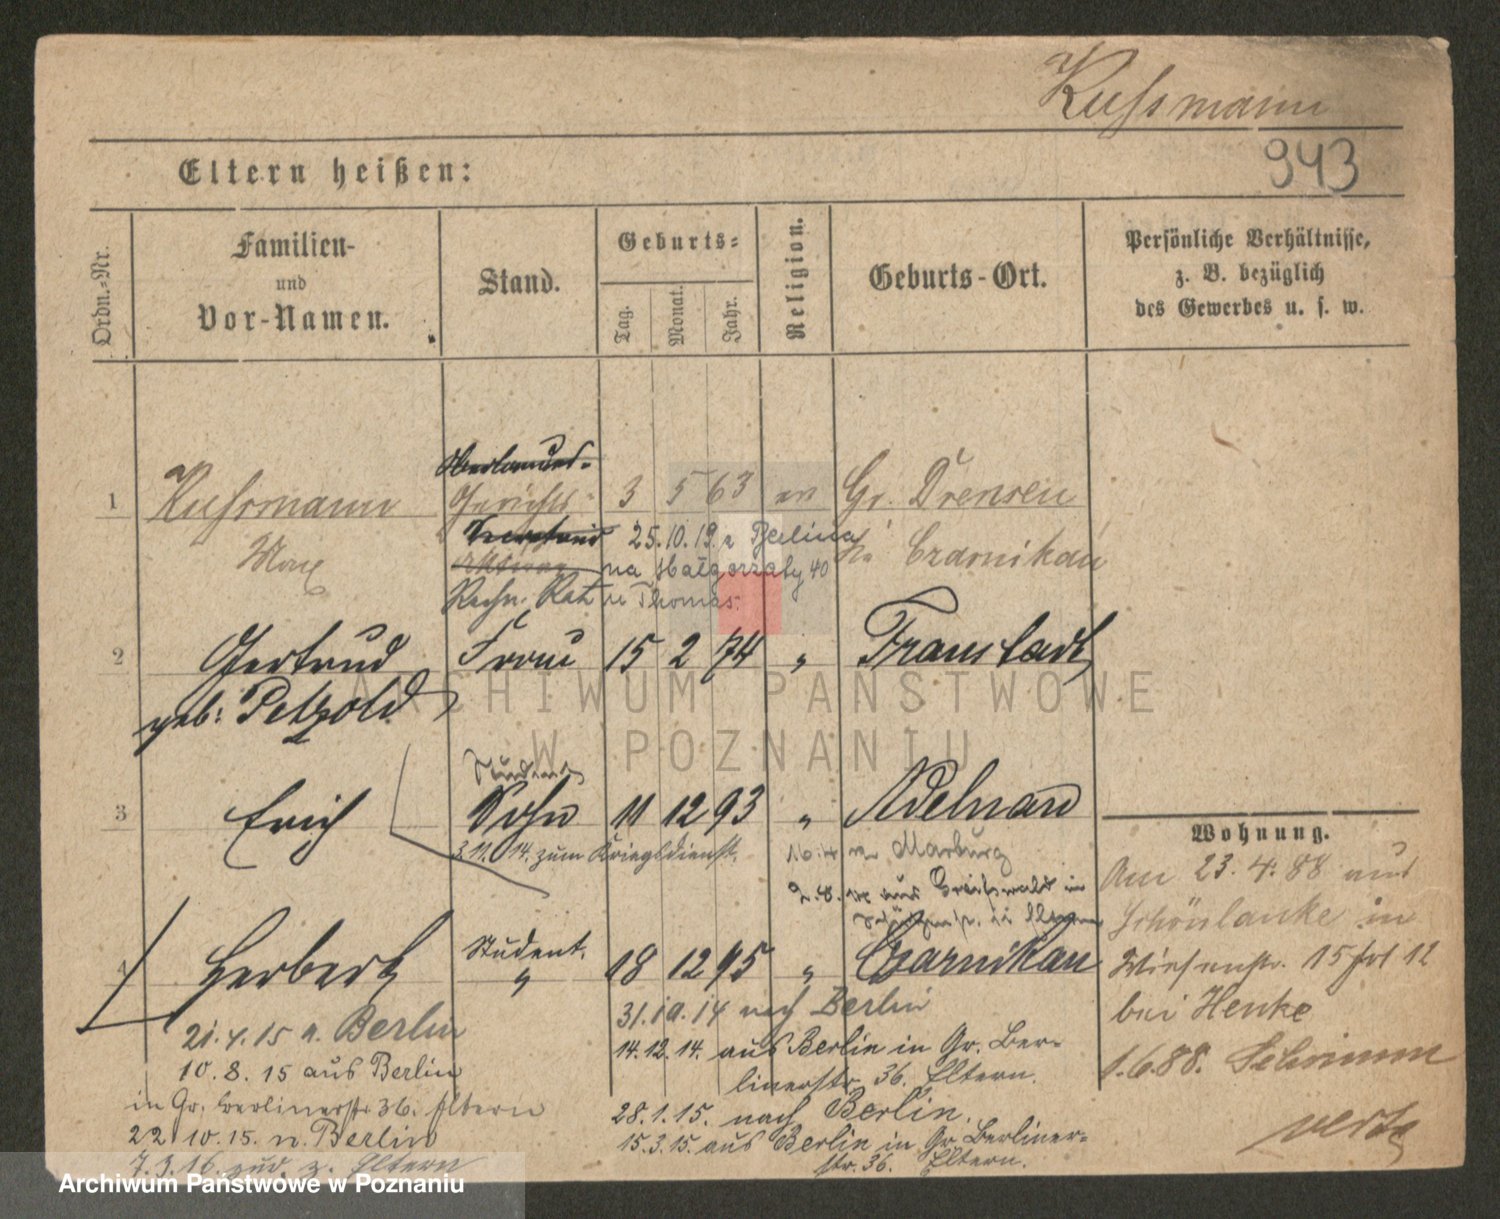 Kussmann
943
Eltern heißen:
Ordn.-Nr.
Familien-
und
Vor-Namen.
Stand.
Geburts-
Tag.
Monat.
Jahr.
Religion.
Geburts-Ort.
Persönliche Verhältnisse,
z. B. bezüglich
des Gewerbes u. s. w.
1 Kussmann Gerichts- 3 5 63 ev Gr. Drensen
Max
25.10.19. z Berlina
Czarnikau
na Małgorzaty 40
Rechn. Rat u Thomas.
2 Gertrud Frau 15 2 74 " Fraustadt
geb: Petzold
Student
3 Erich Sohn 11 12 93 " Adelnau
3.11.14. zum Kriegsdienst.
16.4 n. Marburg
2.8. aus Greifswald in
4 Herbert Student. 18 12 95 " Czarnikau
"
31.10.14 nach Berlin
14.12.14. aus Berlin in Gr. Ber-
linerstr. 36. Eltern.
28.1.15. nach Berlin.
15.3.15. aus Berlin in Gr. Berliner-
str. 36. Eltern.
21.4.15 n. Berlin
10.8.15 aus Berlin
in Gr. Berlinerstr 36. Eltern
22.10.15. n. Berlin
7.3.16. z. Eltern
Wohnung.
Am 23.4.88 aus
Schönlanke in
Wiesenstr. 15 12
bei Henke
1.6.88. Schrimm
verte
ARCHIWUM PAŃSTWOWE
W POZNANIU
Archiwum Państwowe w Poznaniu